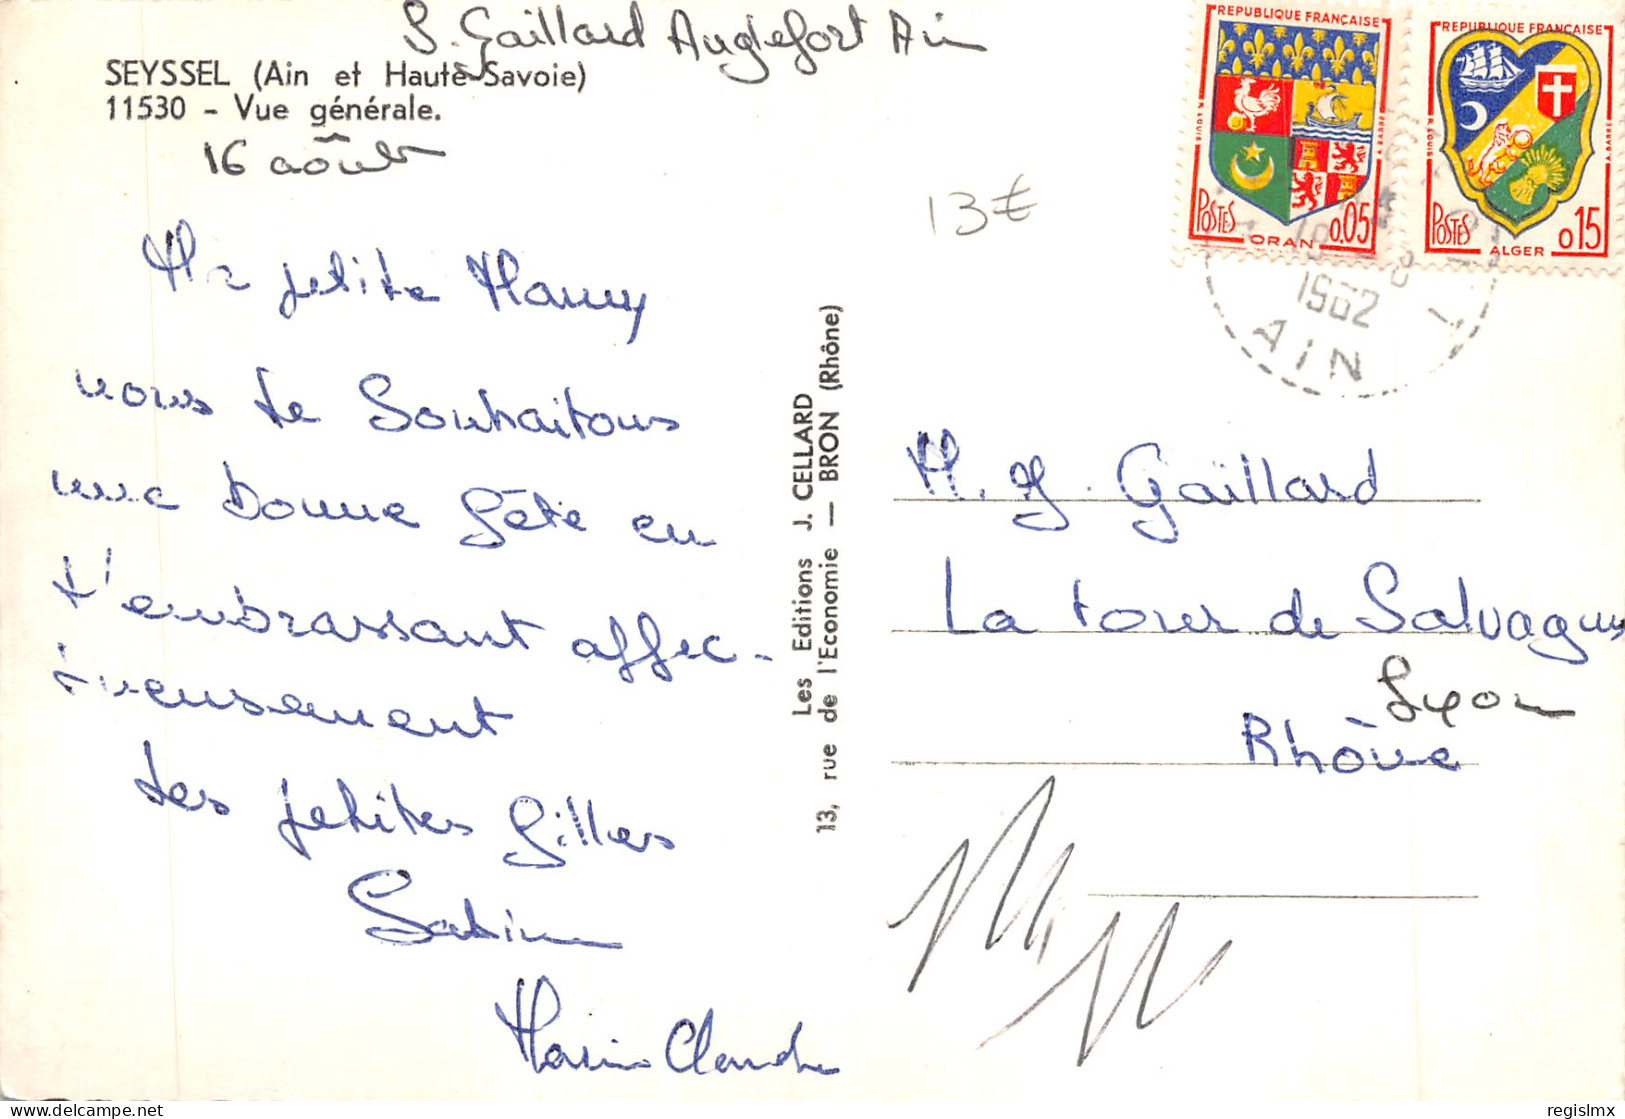 S. Gaillard Anglefort Ain
SEYSSEL (Ain et Haute-Savoie)
11530 - Vue générale.
16 août
Ma petite Mamy
nous te souhaitons
une bonne fête en
t'embrassant affec-
tueusement
tes petites filles
Sabine
Marie Claude
Les Editions J. CELLARD
13, rue de l'Economie — BRON (Rhône)
13€
REPUBLIQUE FRANÇAISE
R. LOUIS
A. BARRE
POSTES
0.05
ORAN
REPUBLIQUE FRANÇAISE
R. LOUIS
A. BARRE
POSTES
0.15
ALGER
1962
AIN
M. G. Gaillard
La tour de Salvagny
Lyon
Rhône
regislmx